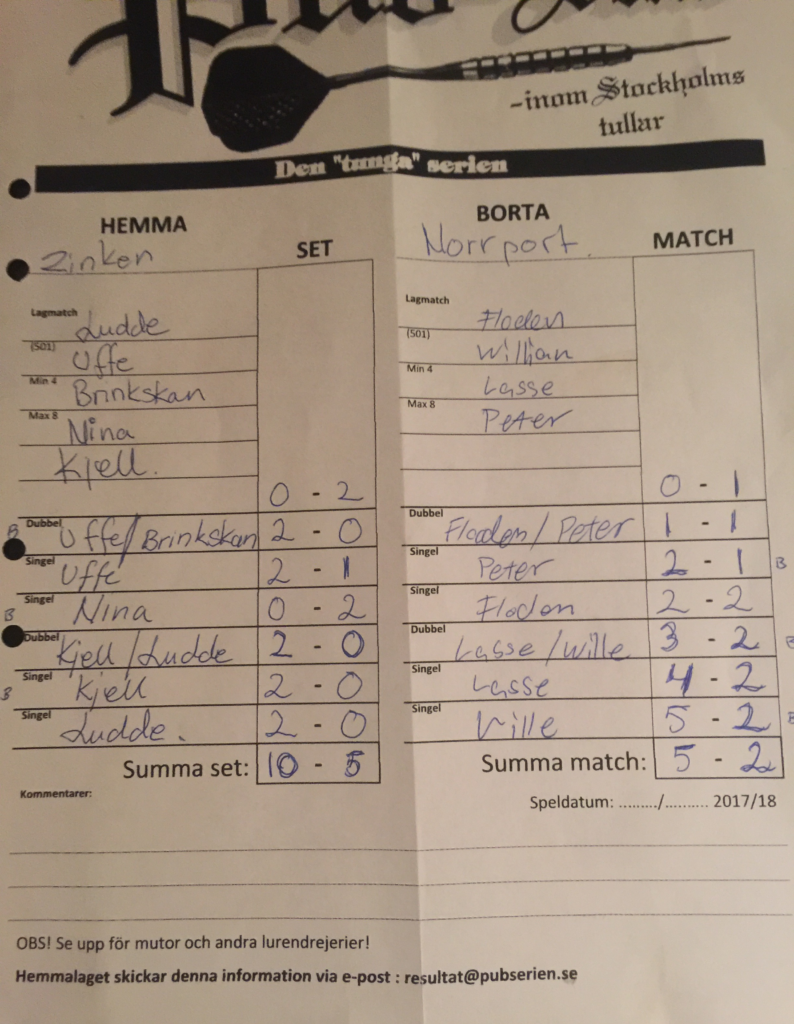 -inom Stockholms
tullar
Den "tunga" serien
HEMMA SET BORTA MATCH
Zinken Norrport.
Lagmatch Ludde Lagmatch Floden
(501) Uffe (501) William
Min 4 Brinkskan Min 4 Lasse
Max 8 Nina Max 8 Peter
Kjell.
0 - 2 0 - 1
B Dubbel Uffe/Brinkskan 2 - 0 Dubbel Floden/Peter 1 - 1
Singel Uffe 2 - 1 Singel Peter 2 - 1 B
B Singel Nina 0 - 2 Singel Floden 2 - 2
Dubbel Kjell/Ludde 2 - 0 Dubbel Lasse/Wille 3 - 2 B
B Singel Kjell 2 - 0 Singel Lasse 4 - 2
Singel Ludde. 2 - 0 Singel Wille 5 - 2 B
Summa set: 10 - 5 Summa match: 5 - 2
Kommentarer: Speldatum: ........./.......... 2017/18
OBS! Se upp för mutor och andra lurendrejerier!
Hemmalaget skickar denna information via e-post : resultat@pubserien.se